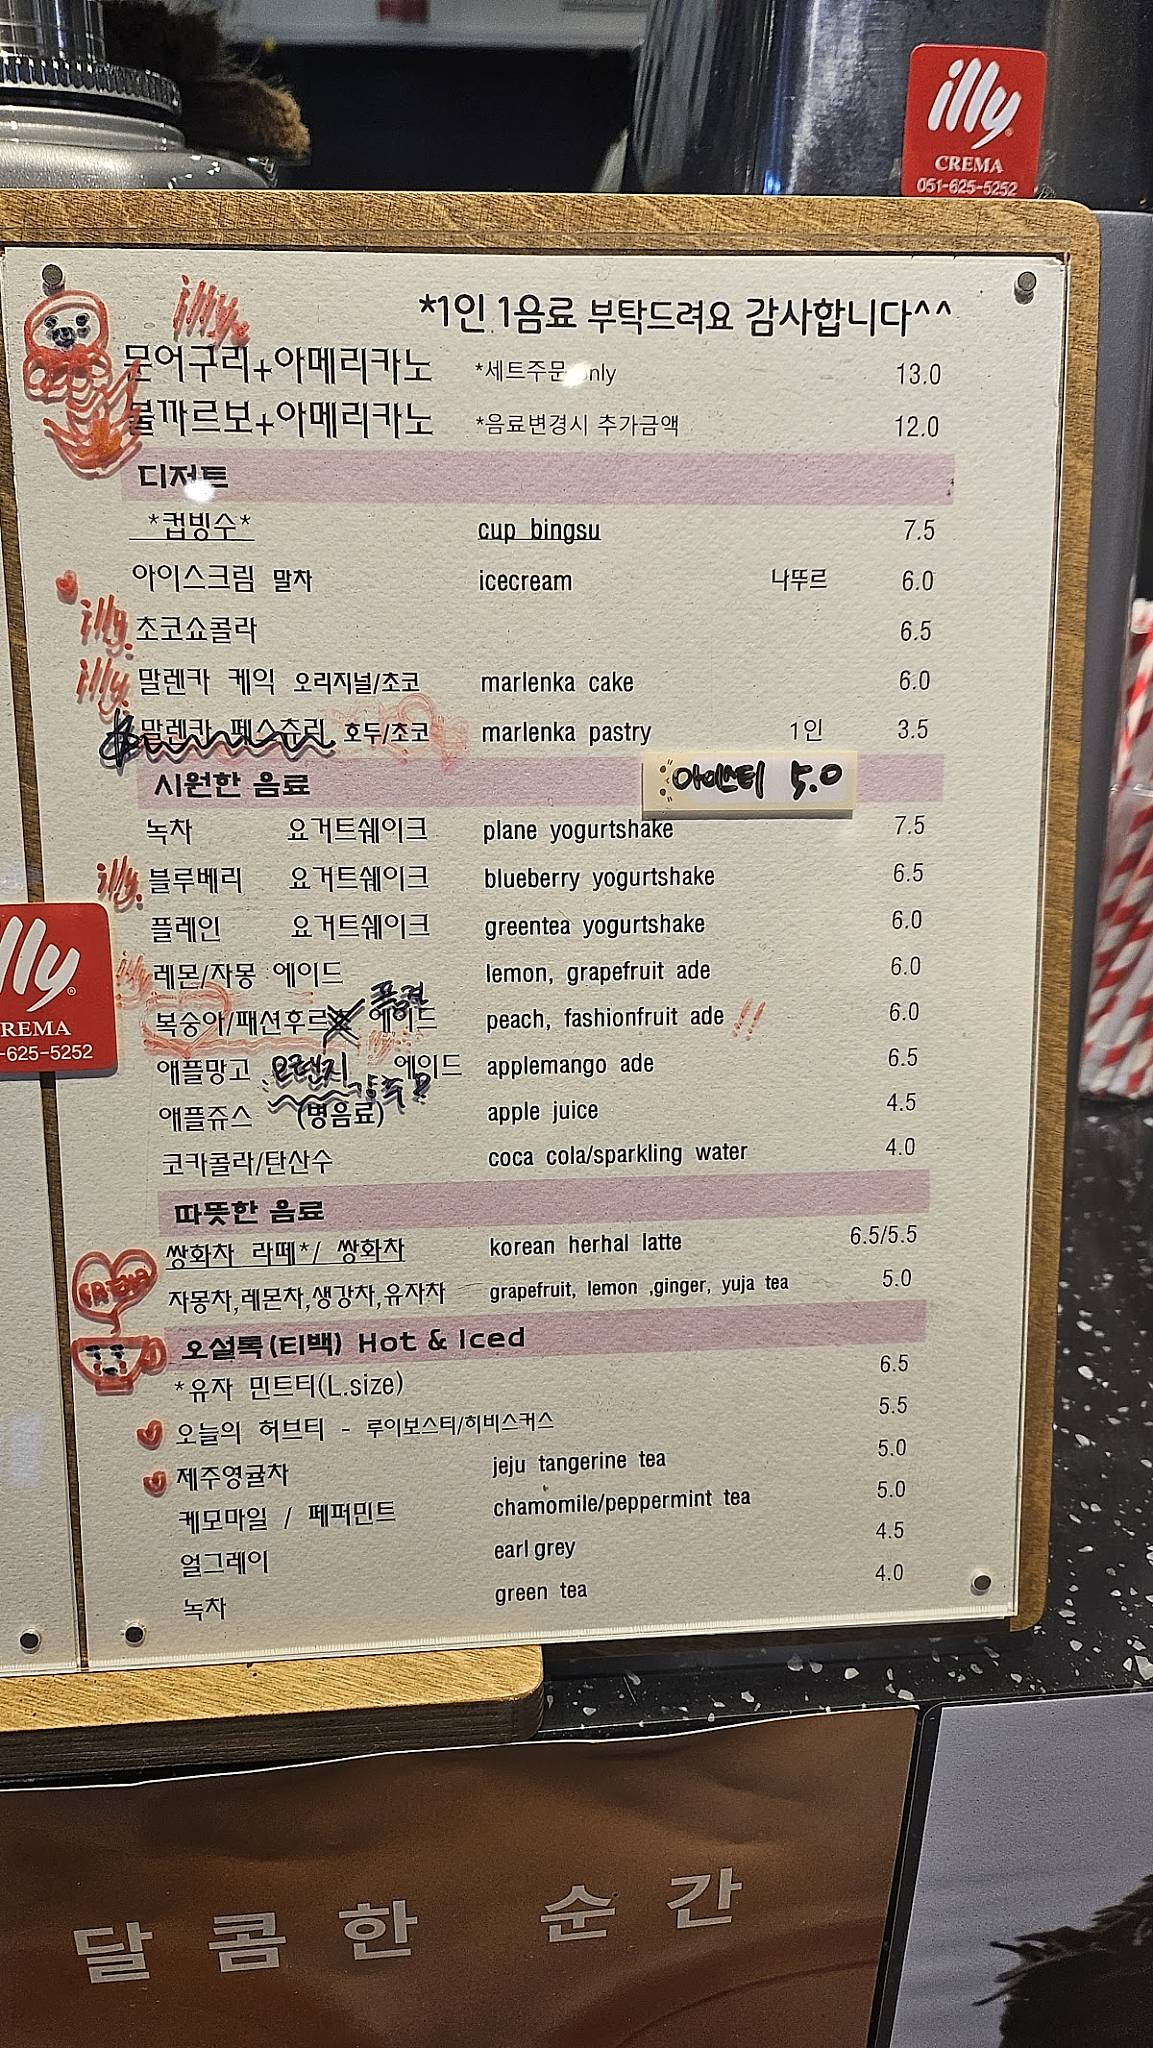 illy
CREMA
051-625-5252
illy
*1인 1음료 부탁드려요 감사합니다^^
문어구리+아메리카노 *세트주문 only 13.0
불까르보+아메리카노 *음료변경시 추가금액 12.0
디저트
*컵빙수* cup bingsu 7.5
아이스크림 말차 icecream 나뚜르 6.0
illy 초코쇼콜라 6.5
illy 말렌카 케익 오리지널/초코 marlenka cake 6.0
말렌카 페스츄리 호두/초코 marlenka pastry 1인 3.5
시원한 음료 아이스티 5.0
녹차 요거트쉐이크 plane yogurtshake 7.5
illy 블루베리 요거트쉐이크 blueberry yogurtshake 6.5
플레인 요거트쉐이크 greentea yogurtshake 6.0
illy
CREMA
-625-5252
illy 레몬/자몽 에이드 lemon, grapefruit ade 6.0
품절
복숭아/패션후르츠 에이드 peach, fashionfruit ade !! 6.0
애플망고 오렌지 에이드 applemango ade 6.5
애플쥬스 (병음료) apple juice 4.5
코카콜라/탄산수 coca cola/sparkling water 4.0
따뜻한 음료
쌍화차 라떼*/ 쌍화차 korean herhal latte 6.5/5.5
자몽차,레몬차,생강차,유자차 grapefruit, lemon ,ginger, yuja tea 5.0
오설록(티백) Hot & Iced
*유자 민트티(L.size) 6.5
오늘의 허브티 - 루이보스티/히비스커스 5.5
제주영귤차 jeju tangerine tea 5.0
케모마일 / 페퍼민트 chamomile/peppermint tea 5.0
얼그레이 earl grey 4.5
녹차 green tea 4.0
달콤한 순간